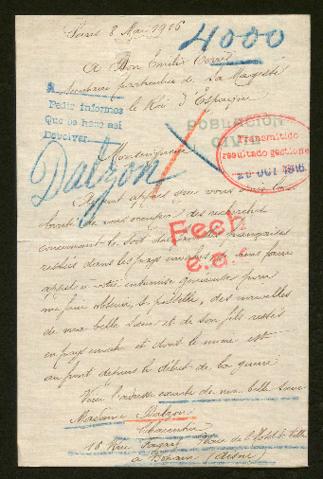 Paris 8 Mai 1916
4000
A Don Emilio
Secrétaire particulier de Sa Majesté
le Roi d'Espagne
Pedir informes
Que se hace así
Devolver
POBLACION
CIVIL
Transmitido
resultado gestiones
OCT 1916
Monseigneur
Dalzon
appris que vous
de vous occuper des recherches
concernant le sort des françaises
restées dans les pays envahis, je viens faire
appel à votre généreuse pour
me faire obtenir, si possible, des nouvelles
Fech
e.a.
de ma belle sœur et de son fils restés
en pays envahi et dont le mari est
au front depuis le début de la guerre
Voici l'adresse exacte de ma belle sœur
Madame Dalzon
Charcutier
18 Rue Place de l'Hôtel de Ville
à Bohain (Aisne)